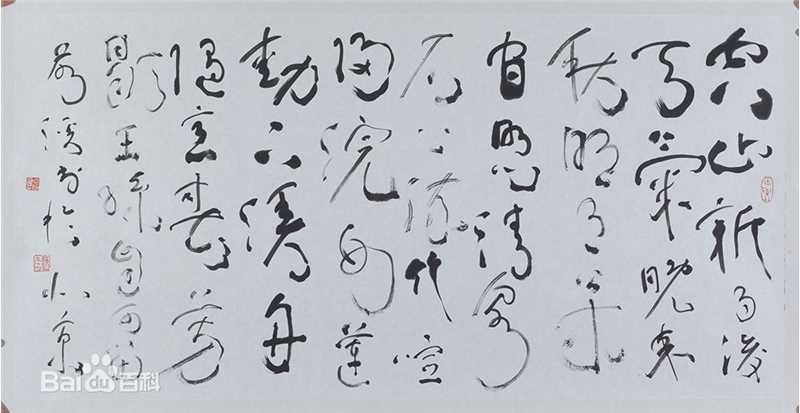 空山新雨後
天氣晚来
秋明月松
間照清泉
石上流竹喧
歸浣女蓮
動下漁舟
隨意春芳
歇王孫自可留
溪书於北京
Bai百科